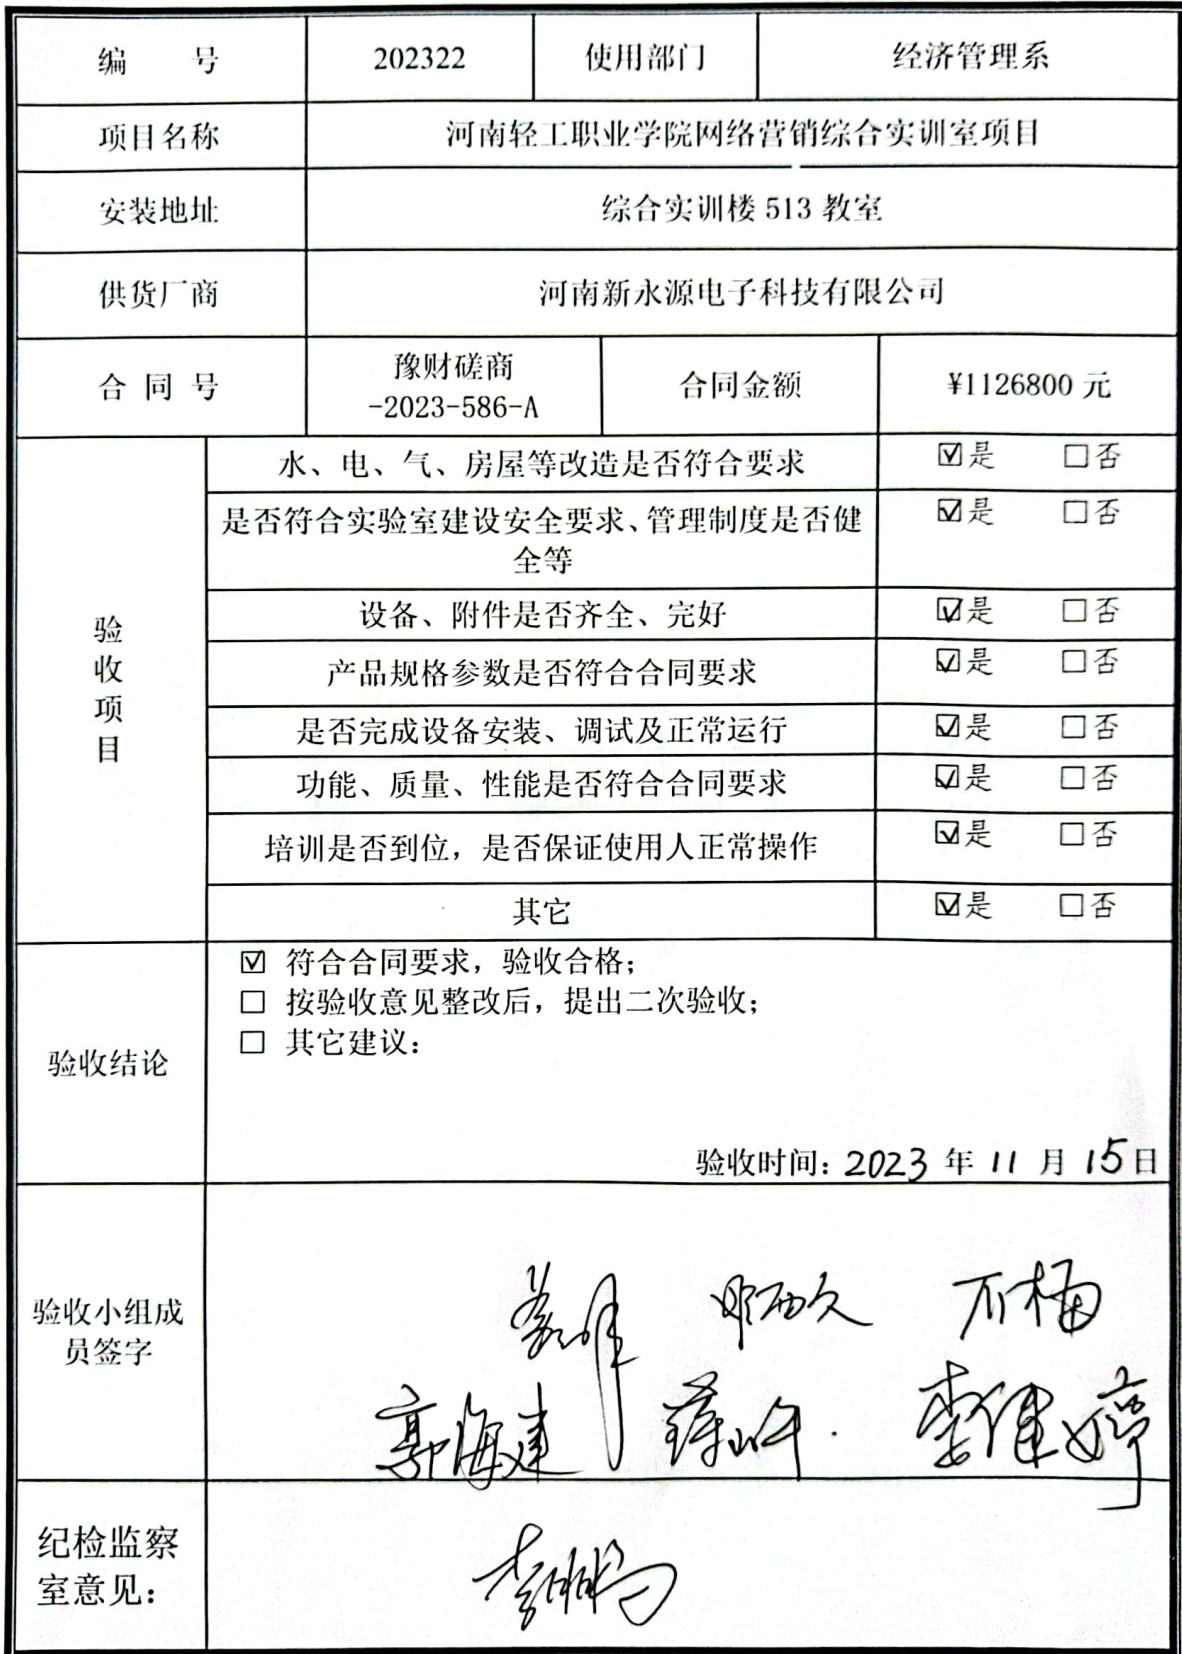 编 号 202322 使用部门 经济管理系
项目名称 河南轻工职业学院网络营销综合实训室项目
安装地址 综合实训楼 513 教室
供货厂商 河南新永源电子科技有限公司
合 同 号 豫财磋商 合同金额 ¥1126800 元
-2023-586-A
验收项目
水、电、气、房屋等改造是否符合要求 ☑是 □否
是否符合实验室建设安全要求、管理制度是否健 ☑是 □否
全等
设备、附件是否齐全、完好 ☑是 □否
产品规格参数是否符合合同要求 ☑是 □否
是否完成设备安装、调试及正常运行 ☑是 □否
功能、质量、性能是否符合合同要求 ☑是 □否
培训是否到位，是否保证使用人正常操作 ☑是 □否
其它 ☑是 □否
验收结论
☑ 符合合同要求，验收合格；
□ 按验收意见整改后，提出二次验收；
□ 其它建议：
验收时间：2023 年 11 月 15 日
验收小组成
员签字
郭海建 李健婷
纪检监察
室意见：